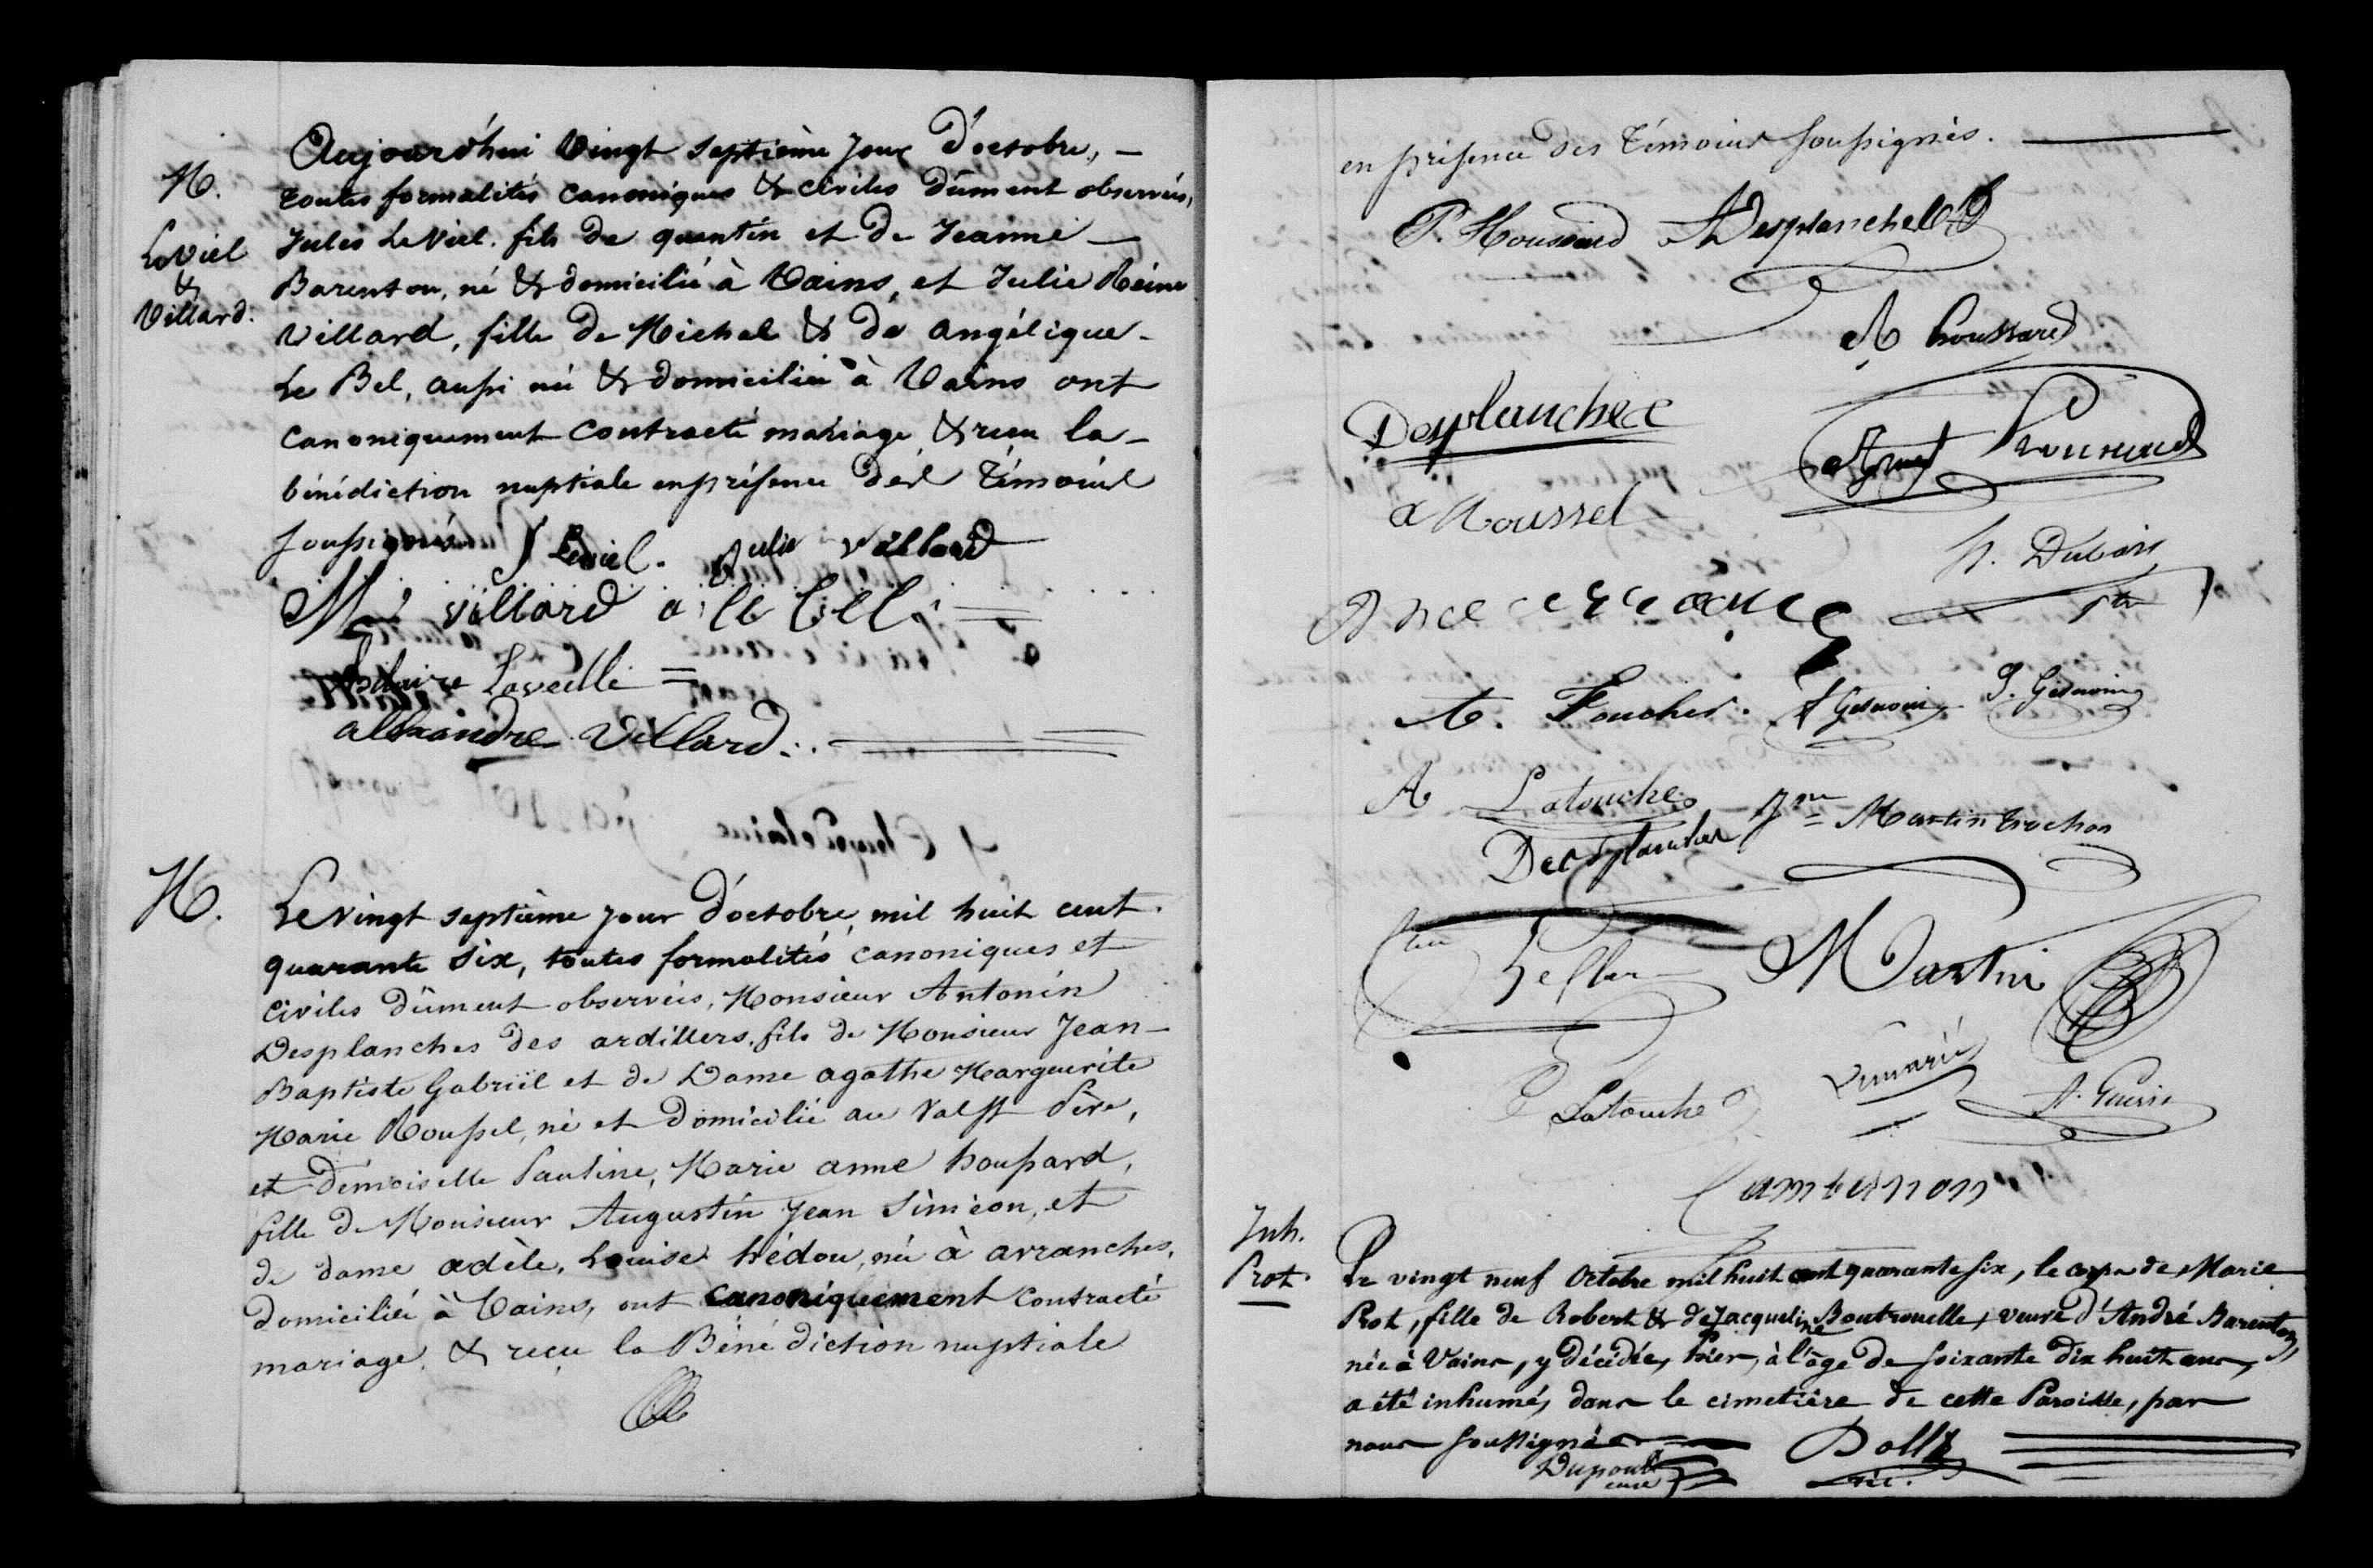 M.
LeViel
&
Villard.
Aujourd'hui vingt septième jour d'octobre, —
toutes formalités canoniques & civiles dûment observées,
Jules LeViel, fils de quentin et de Jeanne —
Barenton, né & domicilié à Vains, et Julie Reine
Villard, fille de Michel & de angélique -
Le Bel, aussi née & domiciliée à Vains ont
canoniquement contracté mariage & reçu la -
bénédiction nuptiale en présence des témoins
soussignés
J Leviel. Julie Villard
M villard a le bel
hilaire Laveille =
allexandre Villard
M.
Le vingt septième jour d'octobre, mil huit cent
quarante six, toutes formalités canoniques et
civiles dûment observées, Monsieur Antonin
Desplanches des ardillers, fils de Monsieur Jean-
Baptiste Gabriël et de Dame agathe Marguerite
Marie Roussel, né et domicilié au Val St Père,
et demoiselle Pauline, Marie anne houssard,
fille de Monsieur Augustin Jean Siméon, et
de dame adèle, Louise hédou, née à avranches,
domiciliée à Vains, ont canoniquement contracté
mariage, & reçu la Bénédiction nuptiale
en présence des témoins soussignés.
P. Houssard A Desplanches
A houssard
Desplanches
a Roussel
h. Dubois
A. Foucher. P. Gesnouin
A Latouche
Desplanches Martin trochon
Martin
Latouche
A. Guérin
Cambernon
Inh.
Prot.
Le vingt neuf Octobre mil huit cent quarante six, le corps de Marie
Prot, fille de Robert & de Jacqueline Boutrouelle, veuve d'André Barenton,
née à Vains, y décédée, hier, à l'âge de soixante dix huit ans,
a été inhumé, dans le cimetière de cette Paroisse, par
nous soussignés
Dupont
curé
vic.